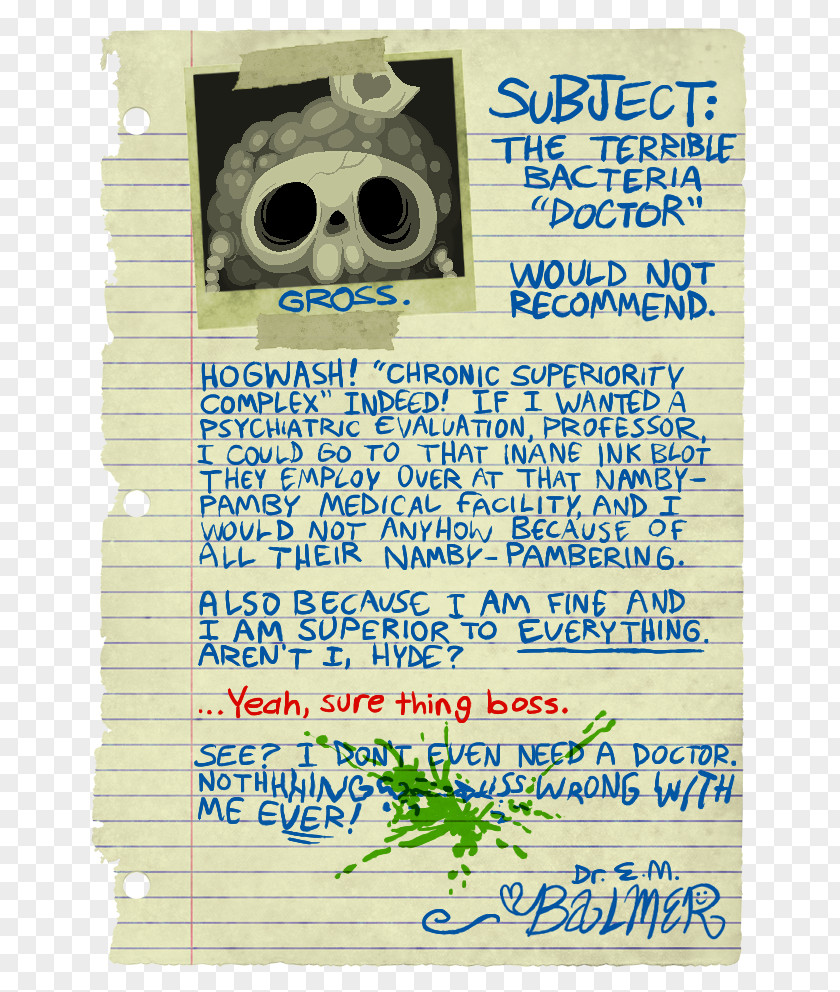 SUBJECT:
THE TERRIBLE
BACTERIA
"DOCTOR"
WOULD NOT
RECOMMEND.
GROSS.
HOGWASH! "CHRONIC SUPERIORITY
COMPLEX" INDEED! IF I WANTED A
PSYCHIATRIC EVALUATION, PROFESSOR,
I COULD GO TO THAT INANE INK BLOT
THEY EMPLOY OVER AT THAT NAMBY-
PAMBY MEDICAL FACILITY, AND I
WOULD NOT ANYHOW BECAUSE OF
ALL THEIR NAMBY-PAMBERING.
ALSO BECAUSE I AM FINE AND
I AM SUPERIOR TO EVERYTHING.
AREN'T I, HYDE?
...Yeah, sure thing boss.
SEE? I DON'T EVEN NEED A DOCTOR.
NOTHHHING WRONG WITH
ME EVER!
Dr. E.M.
BALMER